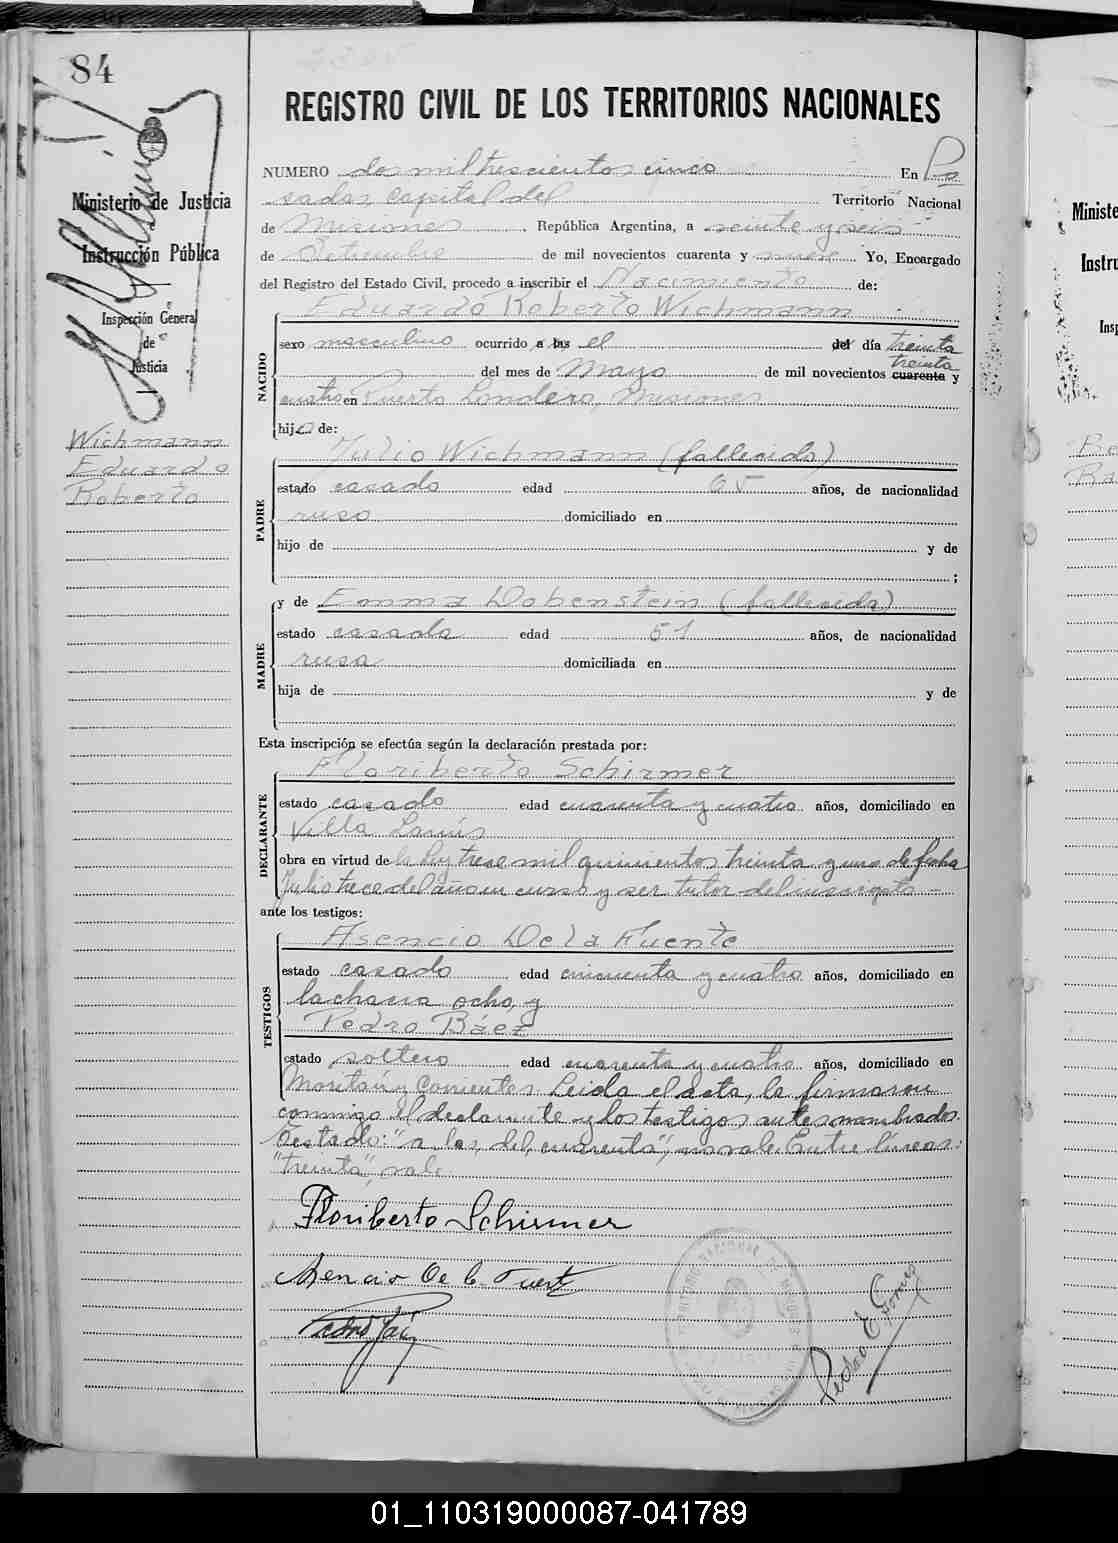 84
Ministerio de Justicia
Instrucción Pública
Inspección General
de
Justicia
Wichmann
Eduardo
Roberto
REGISTRO CIVIL DE LOS TERRITORIOS NACIONALES
NUMERO dos mil trescientos cinco En Po
sadas, capital del Territorio Nacional
de Misiones República Argentina, a veinte y seis
de Setiembre de mil novecientos cuarenta y nueve Yo, Encargado
del Registro del Estado Civil, procedo a inscribir el Nacimiento de:
Eduardo Roberto Wichmann
NACIDO
sexo masculino ocurrido a las el del día treinta
treinta
del mes de Mayo de mil novecientos cuarenta y
cuatro en Puerto Londero, Misiones
hijo de:
PADRE
Julio Wichmann (fallecido)
estado casado edad 65 años, de nacionalidad
ruso domiciliado en
hijo de y de
;
MADRE
y de Emma Dobenstein (fallecida)
estado casada edad 51 años, de nacionalidad
rusa domiciliada en
hija de y de
Esta inscripción se efectúa según la declaración prestada por:
DECLARANTE
Floriberto Schirmer
estado casado edad cuarenta y cuatro años, domiciliado en
Villa Lanús
obra en virtud de la ley trece mil quinientos treinta y uno de fecha
Julio trece del año en curso y ser tutor del inscripto
ante los testigos:
TESTIGOS
Asencio De la Fuente
estado casado edad cincuenta y cuatro años, domiciliado en
la chacra ocho, y
Pedro Báez
estado soltero edad cuarenta y cuatro años, domiciliado en
y Corrientes. Leida el acta, la firmaron
conmigo el declarante y los testigos antes nombrados.
Testado: "a las, del, cuarenta", no vale. Entre líneas:
"treinta", vale.
Floriberto Schirmer
Asencio De la Fuente
Pedro Báez
Pedro E Gomez
TERRITORIO NACIONAL DE MISIONES
Ministe
Instru
Insp
01_110319000087-041789